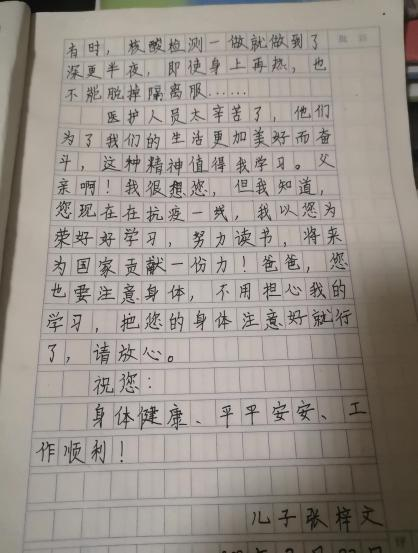 有时，核酸检测一做就做到了
深更半夜，即使身上再热，也
不能脱掉隔离服……
医护人员太辛苦了，他们
为了我们的生活更加美好而奋
斗，这种精神值得我学习。父
亲啊！我很想您，但我知道，
您现在在抗疫一线，我以您为
荣好好学习，努力读书，将来
为国家贡献一份力！爸爸，您
也要注意身体，不用担心我的
学习，把您的身体注意好就行
了，请放心。
祝您：
身体健康、平平安安、工
作顺利！
儿子张梓文